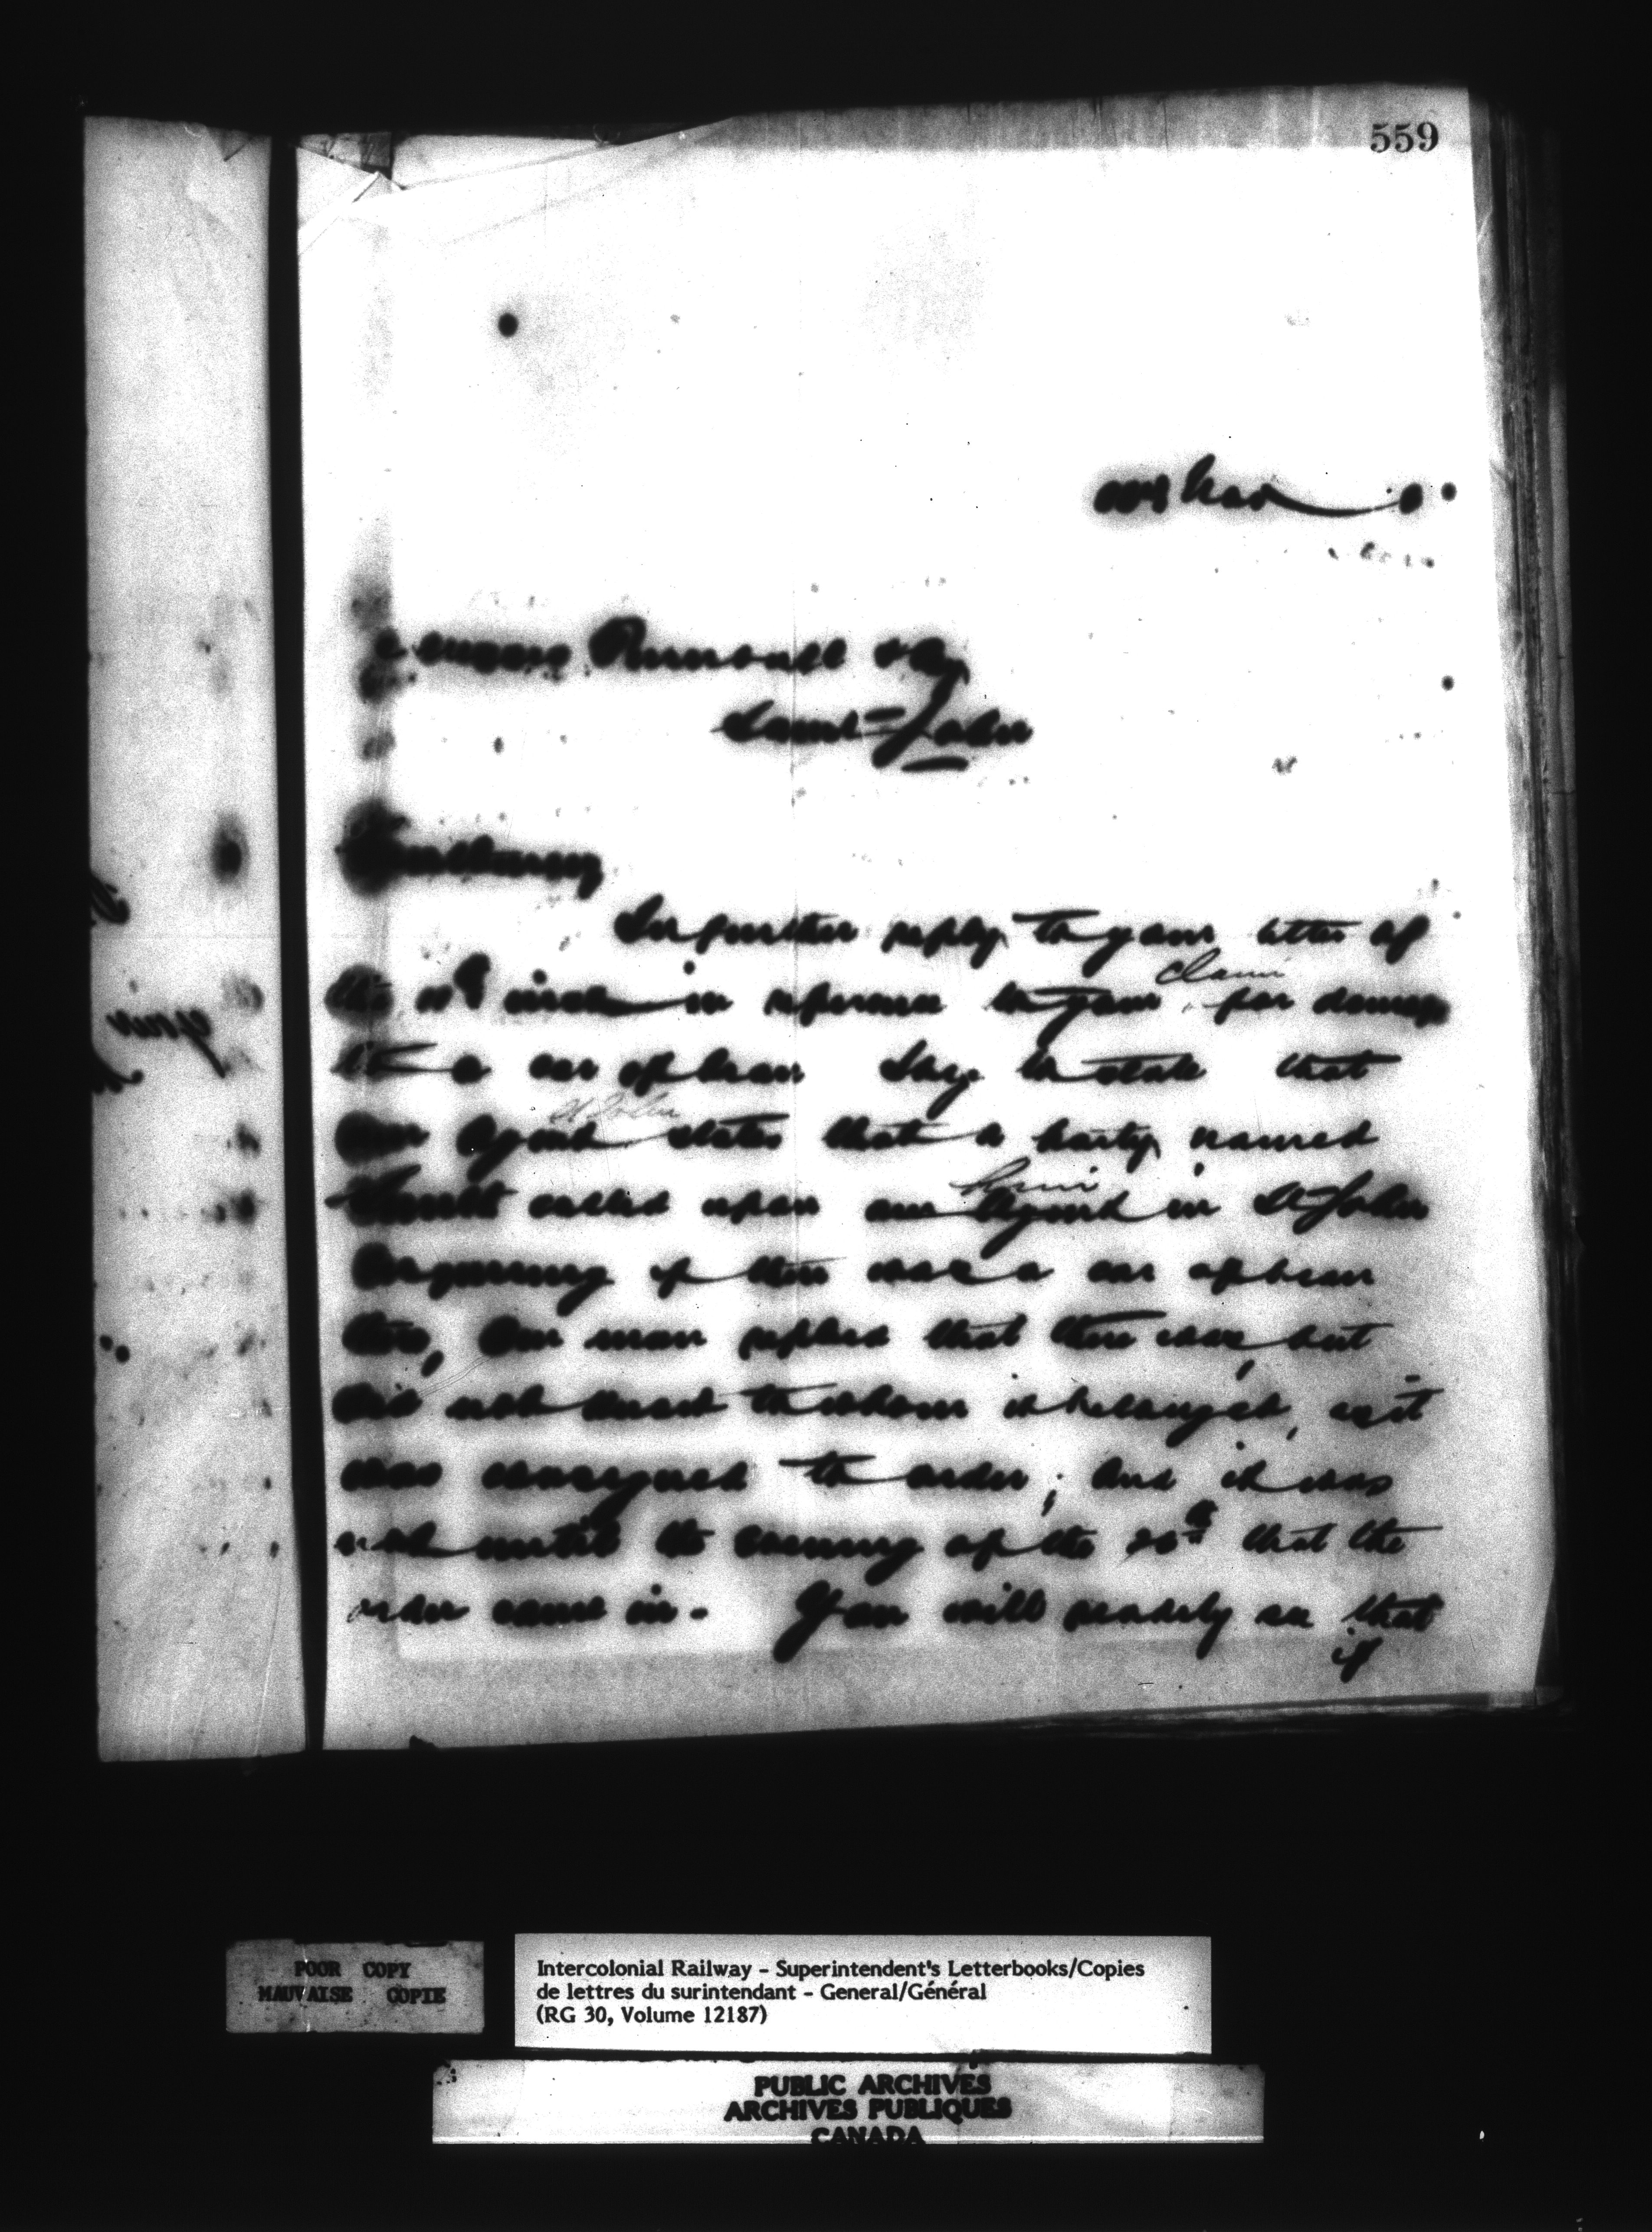 559
Saint John
Gentlemen
In further reply to your letter of
the inst in reference to your claim for damage
to a car of bran I beg to state that
our Agent St John states that a party named
called upon our Agent in St John
enquiring if there was a car of bran
here, Our man replied that there was, but
did not know to whom it belonged, as it
was consigned to order; and it was
not until the evening of the 20th that the
order came in. You will readily see that
if
POOR COPY
MAUVAISE COPIE
Intercolonial Railway - Superintendent's Letterbooks/Copies
de lettres du surintendant - General/Général
(RG 30, Volume 12187)
PUBLIC ARCHIVES
ARCHIVES PUBLIQUES
CANADA